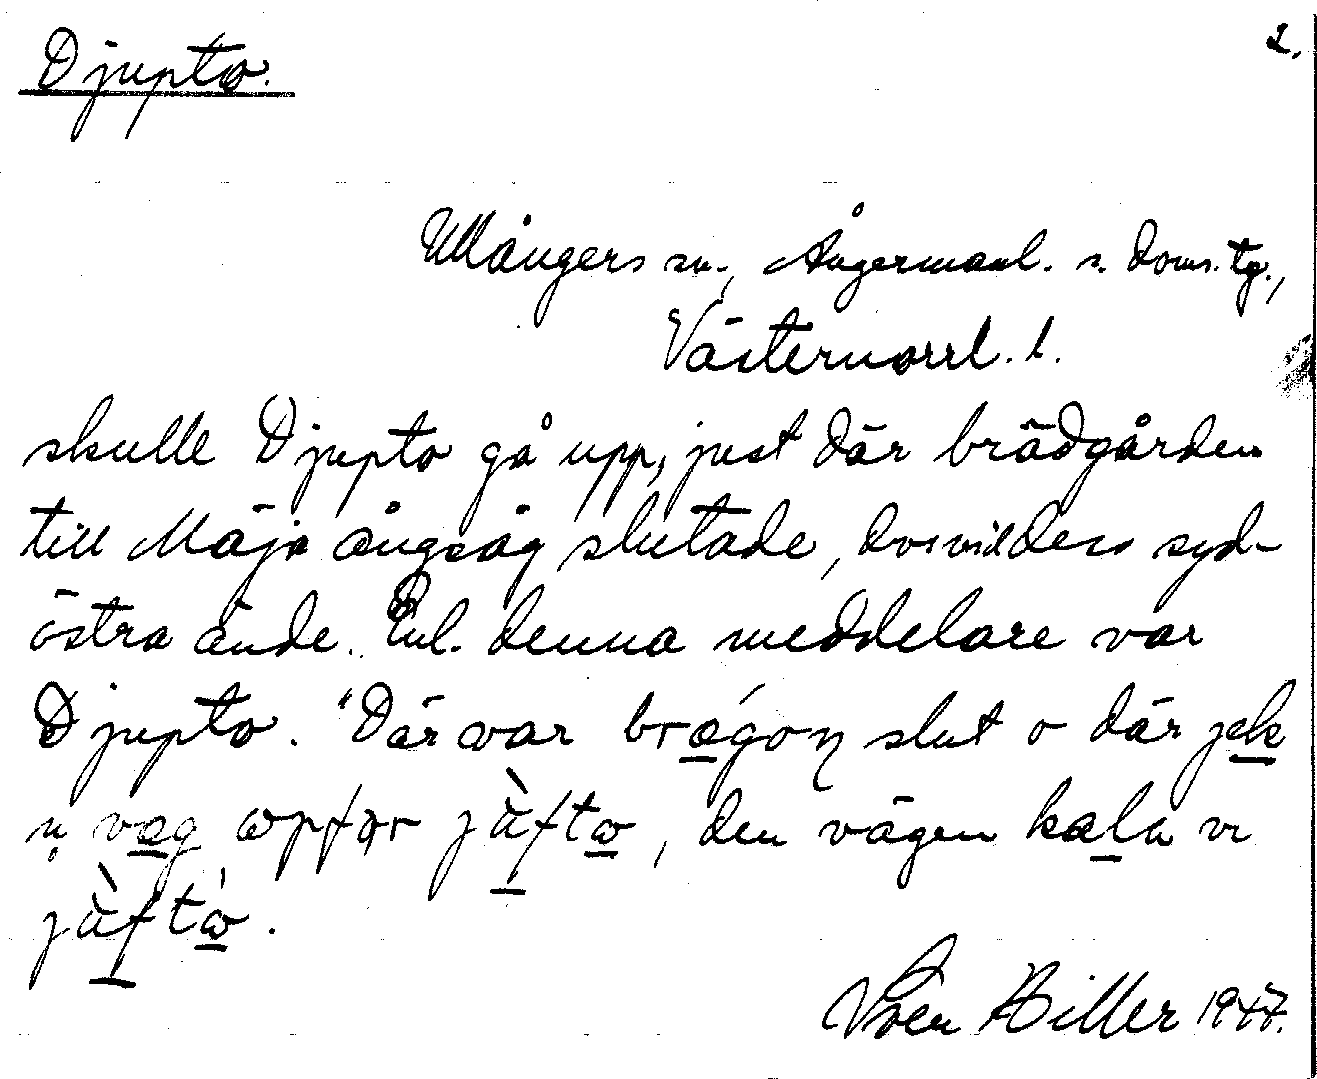 Djupto. 2.
Ullångers sn., Ångermanl. s. doms. tg.,
Västernorrl. l.
skulle Djupto gå upp, just där brädgården
till Mäja ångsåg slutade, dess syd-
östra ände. Enl. denna meddelare var
Djupto. "Där var brágoŋ slut o där jek
vag ɷpfør jùftɷ, den vägen kala vi
jùftɷ̀.
Sven Hiller 1947.